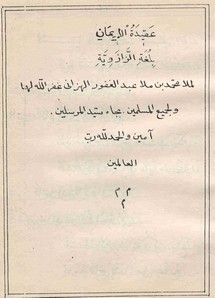 عقيدة الإيمان
بلغة الزازوية
لملا محمد بن ملا عبد الغفور الهزاني غفر الله لهما
ولجميع المسلمين بجاه سيد المرسلين.
آمين والحمد لله رب
العالمين
م م
م